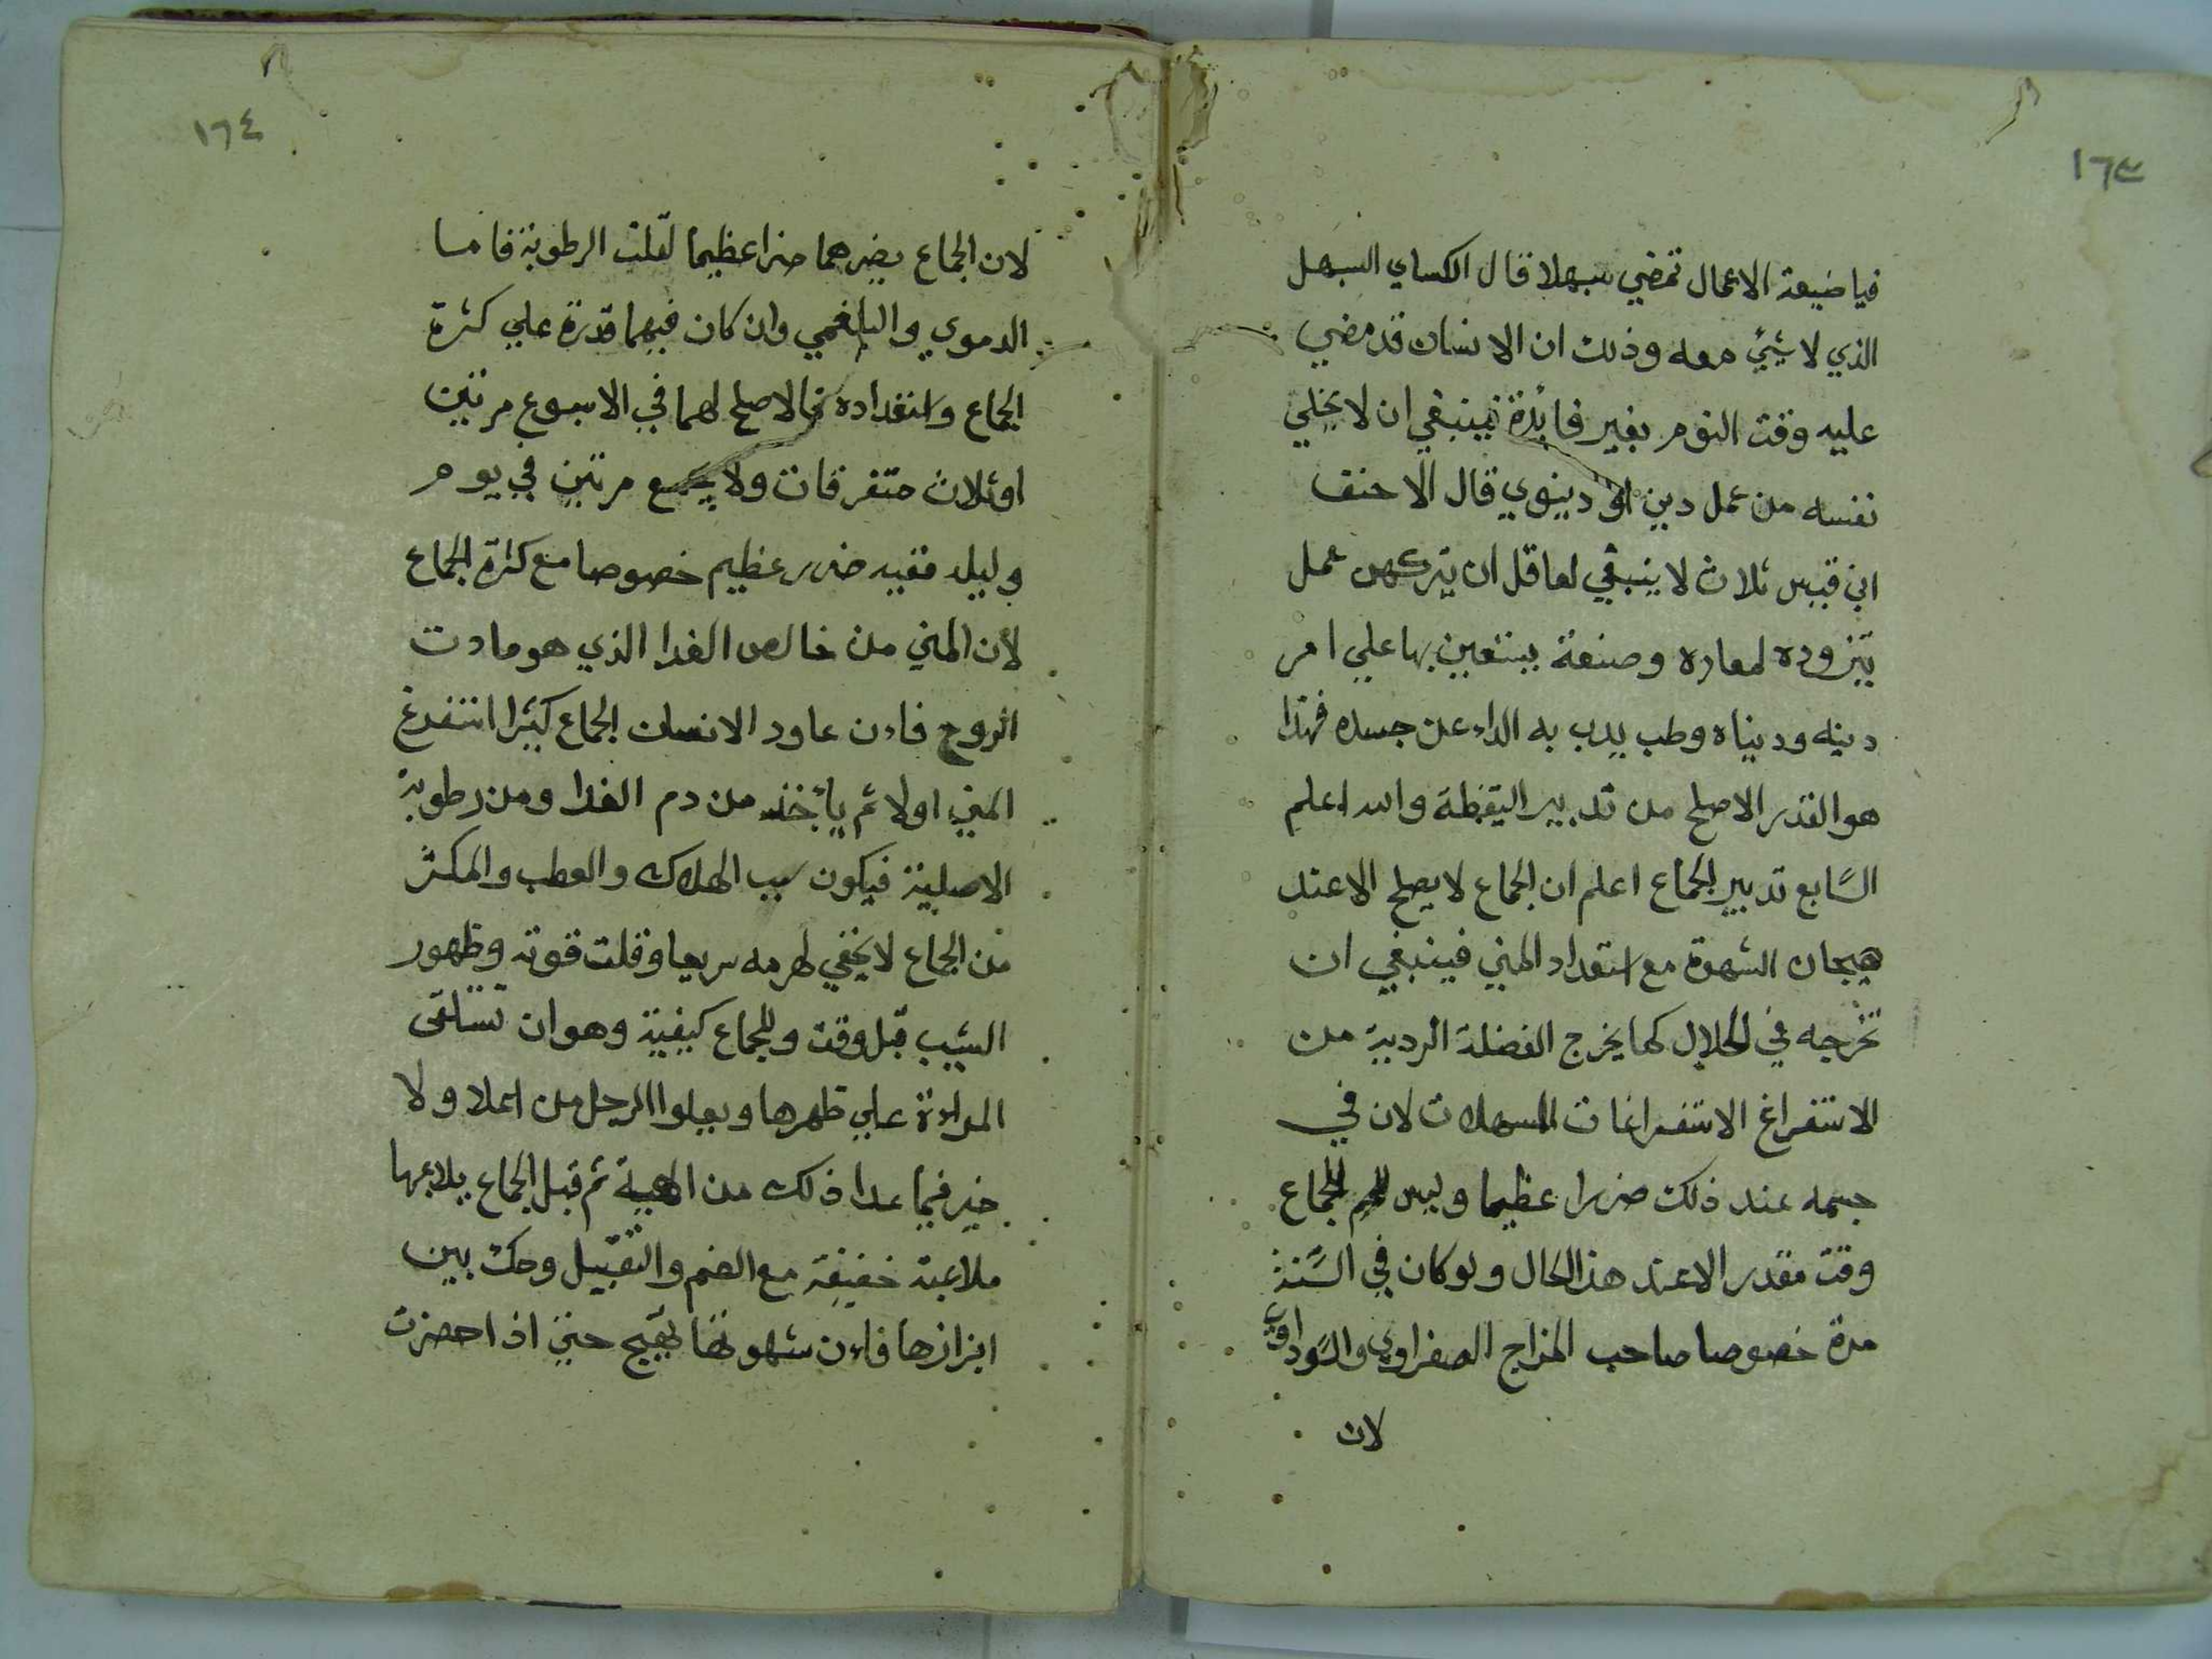 ١٦٣
فيا ضيعة الاعمال تمضي سبهلا قال الكساي السبهل
الذي لا شيئ معه وذلك ان الانسان قد مضي
عليه وقت النوم بغير فائدة فينبغي ان لا يخلي
نفسه من عمل دين او دينوي قال الاحنف
ابن قيس ثلاث لا ينبغي لعاقل ان يتركهن عمل
يتزوده لمعاده وصنعة يستعين بها علي امر
دينه ودنياه وطب يدب به الداء عن جسده فهذا
هو القدر الاصلح من تدبير اليقظة والله اعلم
السابع تدبير الجماع اعلم ان الجماع لا يصلح الا عند
هيجان الشهوة مع استعداد المني فينبغي ان
تخرجه في الحلال كما يخرج الفضلة الردية من
الاستفراغ الاستفراغات المسهلات لان في
جسمه عند ذلك ضررا عظيما وليس للجماع
وقت مقدر الا عند هذا الحال ولو كان في السنة
مدة خصوصا صاحب المزاج الصفراوي والسوداوي
لان
١٦٤
لان الجماع يضرهما ضرا عظيما لقلت الرطوبة فاما
الدموي والبلغمي وان كان فيهما قدرة علي كثرة
الجماع واستعداده فالاصلح لهما في الاسبوع مرتين
او ثلاث متفرقات ولا يجمع مرتين في يوم
وليله ففيه ضرر عظيم خصوصا مع كثرة الجماع
لأن المني من خالص الغدا الذي هو مادت
الروح فاءن عاود الانسان الجماع كثيرا استفرغ
المني اولا ثم يأخذ من دم الغدا ومن رطوبة
الاصلية فيكون سبب الهلاك والعطب والمكثر
من الجماع لا يخفي لهرمه سريعا وقلت قوته وظهور
الشيب قبل وقت وللجماع كيفية وهو ان تستلقى
المراءة علي ظهرها ويعلوا الرجل من اعلا ولا
خير فيما عدا ذلك من الهيية ثم قبل الجماع يلاعبها
ملاعبة خفيفة مع الضم والتقبيل وحك بين
ابزازها فاءن شهوتها تهيج حتي اذا حضرت